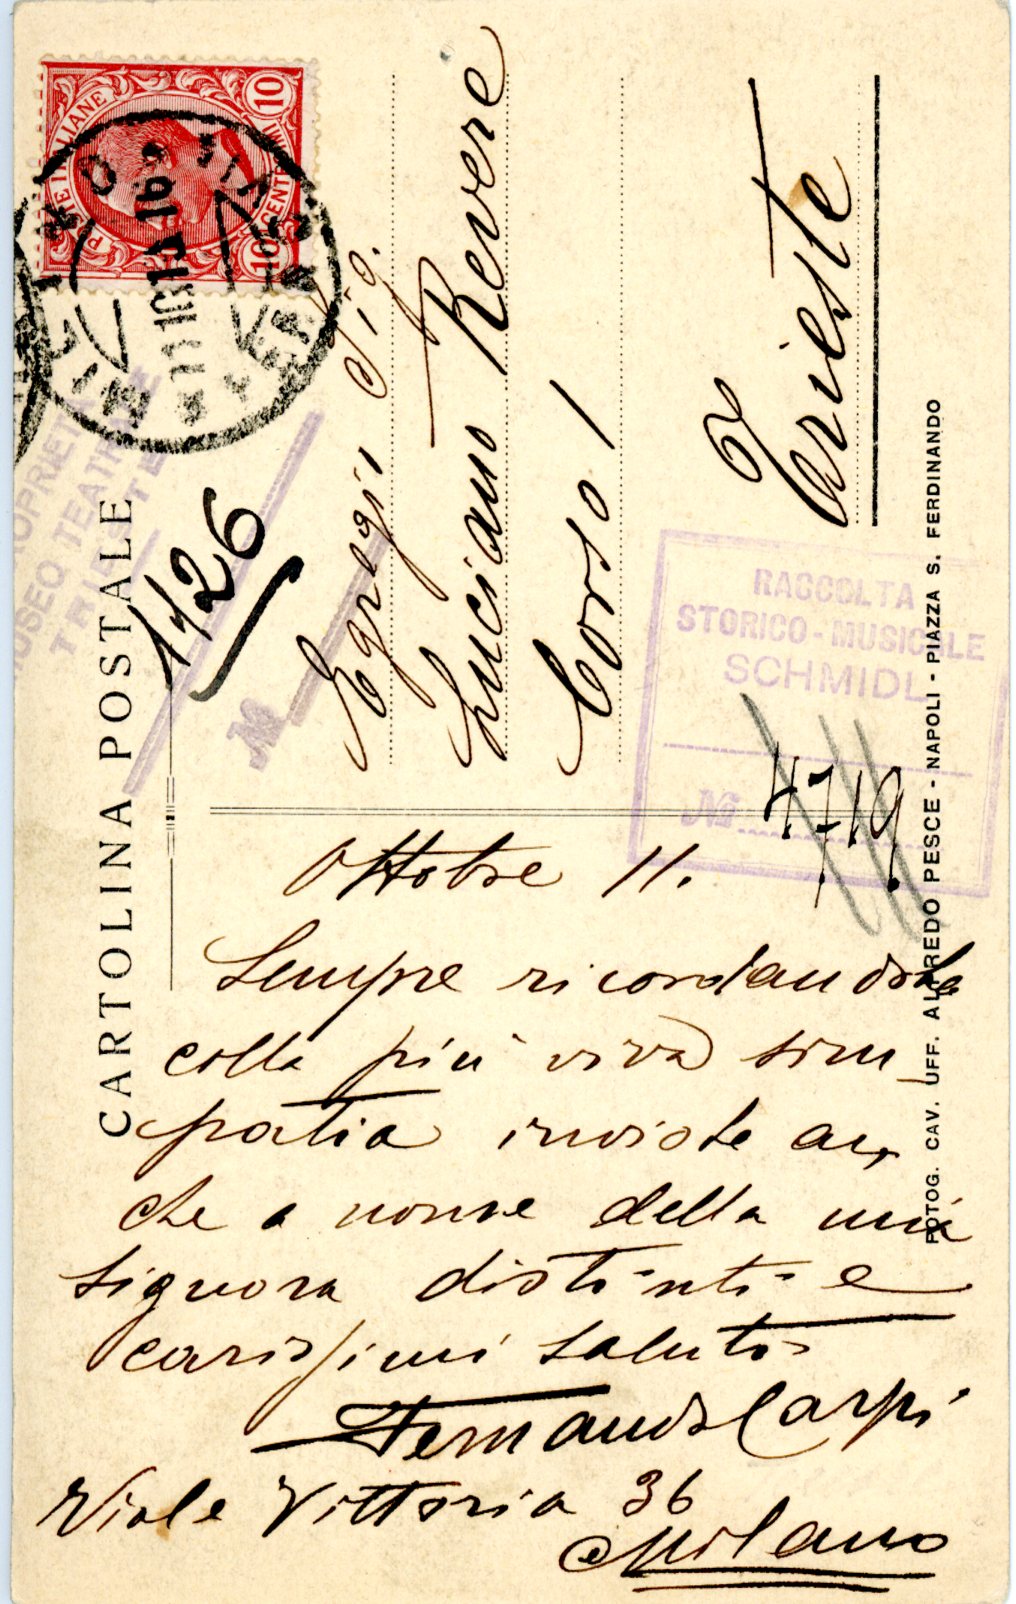 CARTOLINA POSTALE
POSTE ITALIANE
10 CENTESIMI 10
11.10.13.16
PROPRIETÀ
MUSEO TEATRALE
TRIESTE
1/126
N.
Egregio Sig.
Luciano Revere
Corso 1
Trieste
RACCOLTA
STORICO-MUSICALE
SCHMIDL
No
4719
Ottobre 11.
Sempre ricordandola
colla più viva sim_
patia inviole an,
che a nome della mia
signora distinti e
carissimi saluti
Fernando Carpi
Viale Vittoria 36
Milano
FOTOG. CAV. UFF. ALFREDO PESCE - NAPOLI - PIAZZA S. FERDINANDO